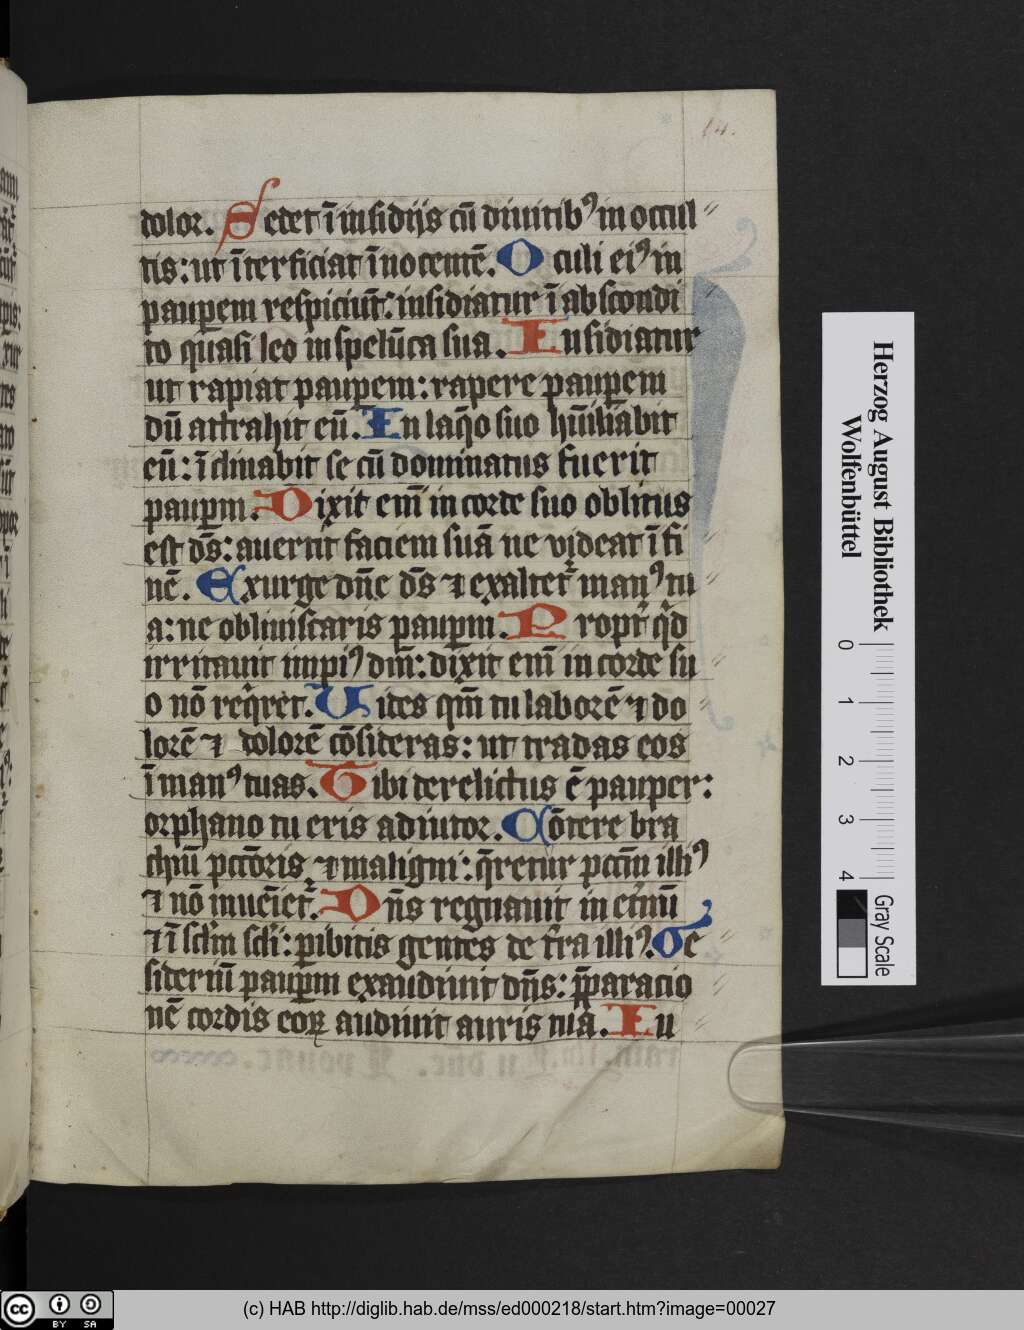 14.
dolor. Sedet ī insidijs cū diuitibꝰ in occul〃
tis: ut īterficiat īnocentē. Oculi eiꝰ in
paupem respiciūt: insidiatur ī abscondi
to quasi leo in spelūca sua. Insidiatur
ut rapiat paupem: rapere paupem
dū attrahit eū. In laq̄o suo hūiliabit
eū: īclinabit se cū dominatus fuerit
paupm. Dixit em̄ in corde suo oblitus
est ds̄: auertit faciem suā ne videat ī fi
nē. Exurge dn̄e ds̄ ⁊ exaltet᷑ manꝰ tu〃
a: ne obliuiscaris paupm. Propt᷑ qd̄
irritauit impiꝰ dm̄: dixit em̄ in corde su〃
o nō req̄ret. Uides qm̄ tu laborē ⁊ do
lorē ⁊ dolorē cōsideras: ut tradas eos
ī manꝰ tuas. Tibi derelictus ē pauper:
orphano tu eris adiutor. Cōtere bra
chiū pctōris ⁊ maligni: q̄retur pctm̄ illiꝰ
⁊ nō inuēiet᷑. Dn̄s regnauit in et᷑nū
⁊ ī sclm̄ scli̅: pibitis gentes de t᷑ra illiꝰ. De
sideriū paupm exaudiuit dn̄s: p̄paratio〃
nē cordis eoꝝ audiuit auris tua. Iu〃
Herzog August Bibliothek
Wolfenbüttel
0 1 2 3 4
Gray Scale
cc BY SA
(c) HAB http://diglib.hab.de/mss/ed000218/start.htm?image=00027